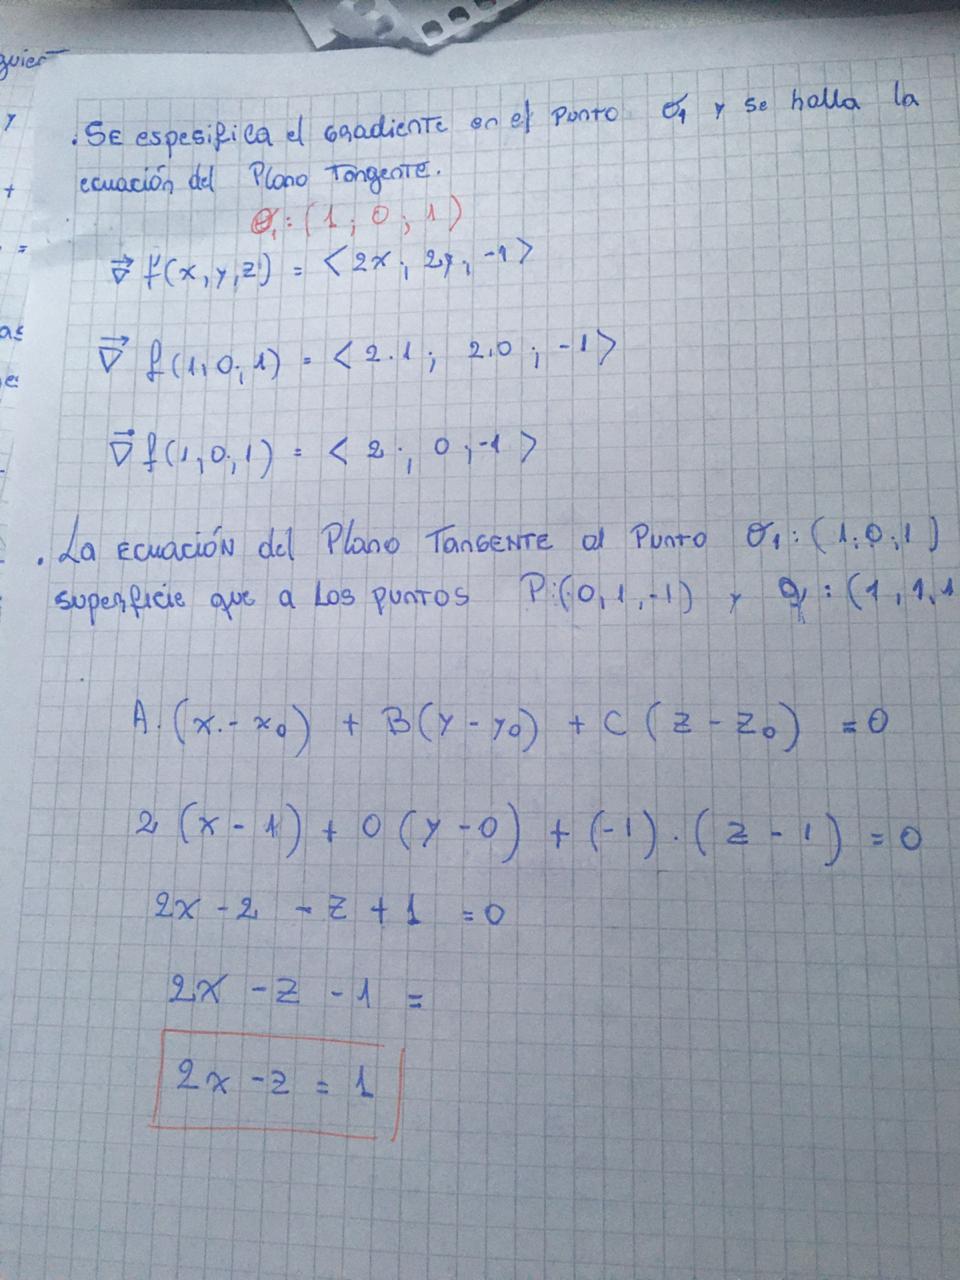 . SE espesifica el gradiente en el Punto σ₁ y se halla la
ecuación del Plano Tangente.
σ₁: (1 ; 0 ; 1)
∇⃗ f(x,y,z) = <2x ; 2y ; -1>
∇⃗ f(1,0,1) = <2.1 ; 2.0 ; -1>
∇⃗ f(1,0,1) = <2 ; 0 ; -1>
. La ECUACIÓN del Plano TANGENTE al Punto σ₁: (1,0,1)
superficie que a Los puntos P:(0,1,-1) y q: (1,1,1
A.(x-x₀) + B(y-y₀) + C(z-z₀) = 0
2(x-1) + 0(y-0) + (-1).(z-1) = 0
2x -2 -z +1 =0
2x -z -1 =
2x -z = 1